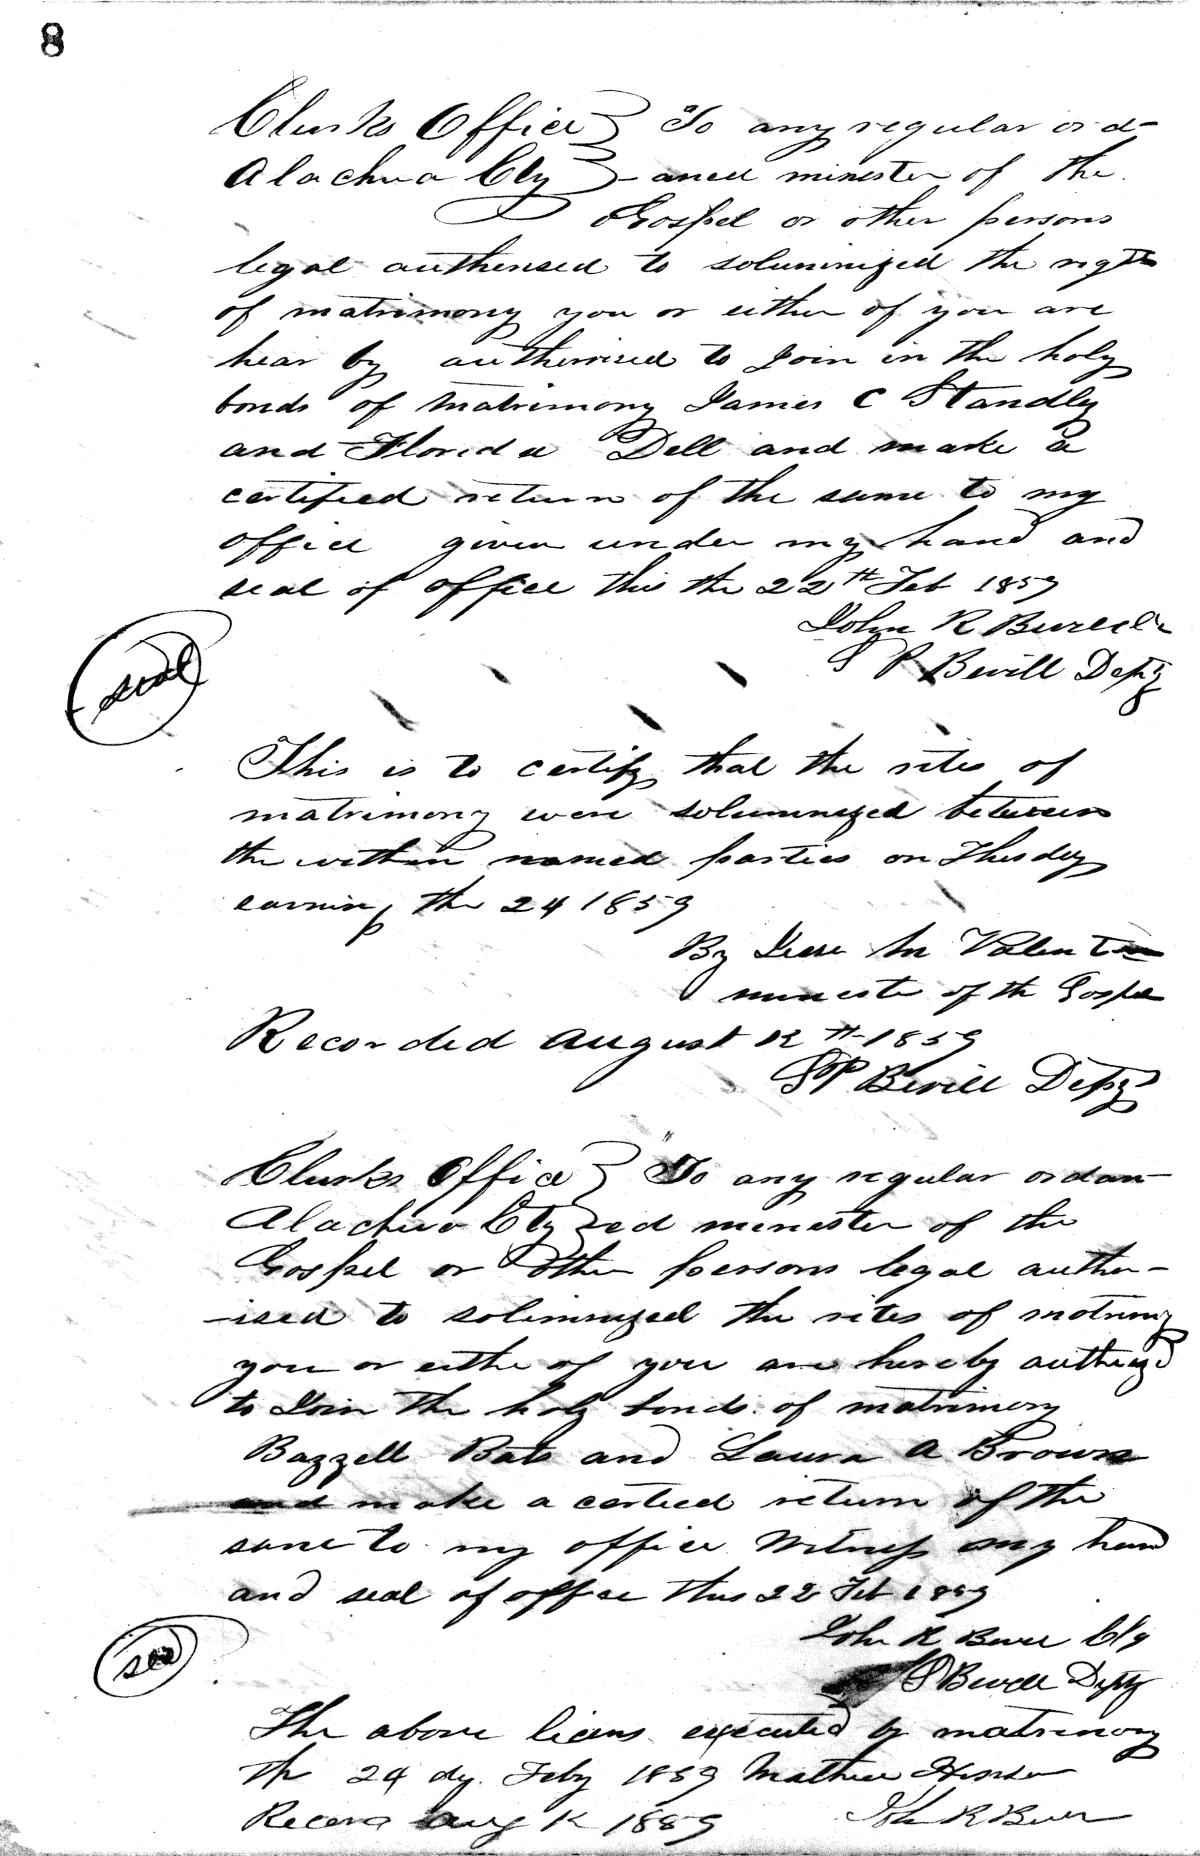 8
Clurks Office } To any regular ord-
Alachua Cty } -aned minester of the
Gospel or other persons
legal authensed to soluminized the rigts
of matrimony you or either of you are
hear by authorised to Join in the holy
bonds of matrimony James C Standly
and Florida Dell and make a
certified return of the same to my
office given under my hand and
seal of office this the 22th Feb 1859
John R
S P Bevill Depty
seal
This is to certify that the rites of
matrimony were soluminized between
the within named parties on
the 24 1859
By M
minester of the Gospel
Recorded August 12th 1859
S P Bevill Depty
Clurks Office } To any regular ordan-
Alachua Cty } ed menester of the
Gospel or other persons legal author-
-ised to soliminized the rites of matrimy
you or eithe of you are hereby
to Join the holy bonds of matrimony
Bazzell Bats and Laura A Brown
and make a certied return of the
same to my office Witness my hand
and seal of office this 22 Feb 1859
John R
S Bevill Depty
The above executed by matrimony
the 24 dy Feby 1859
Aug 12 1859 John R